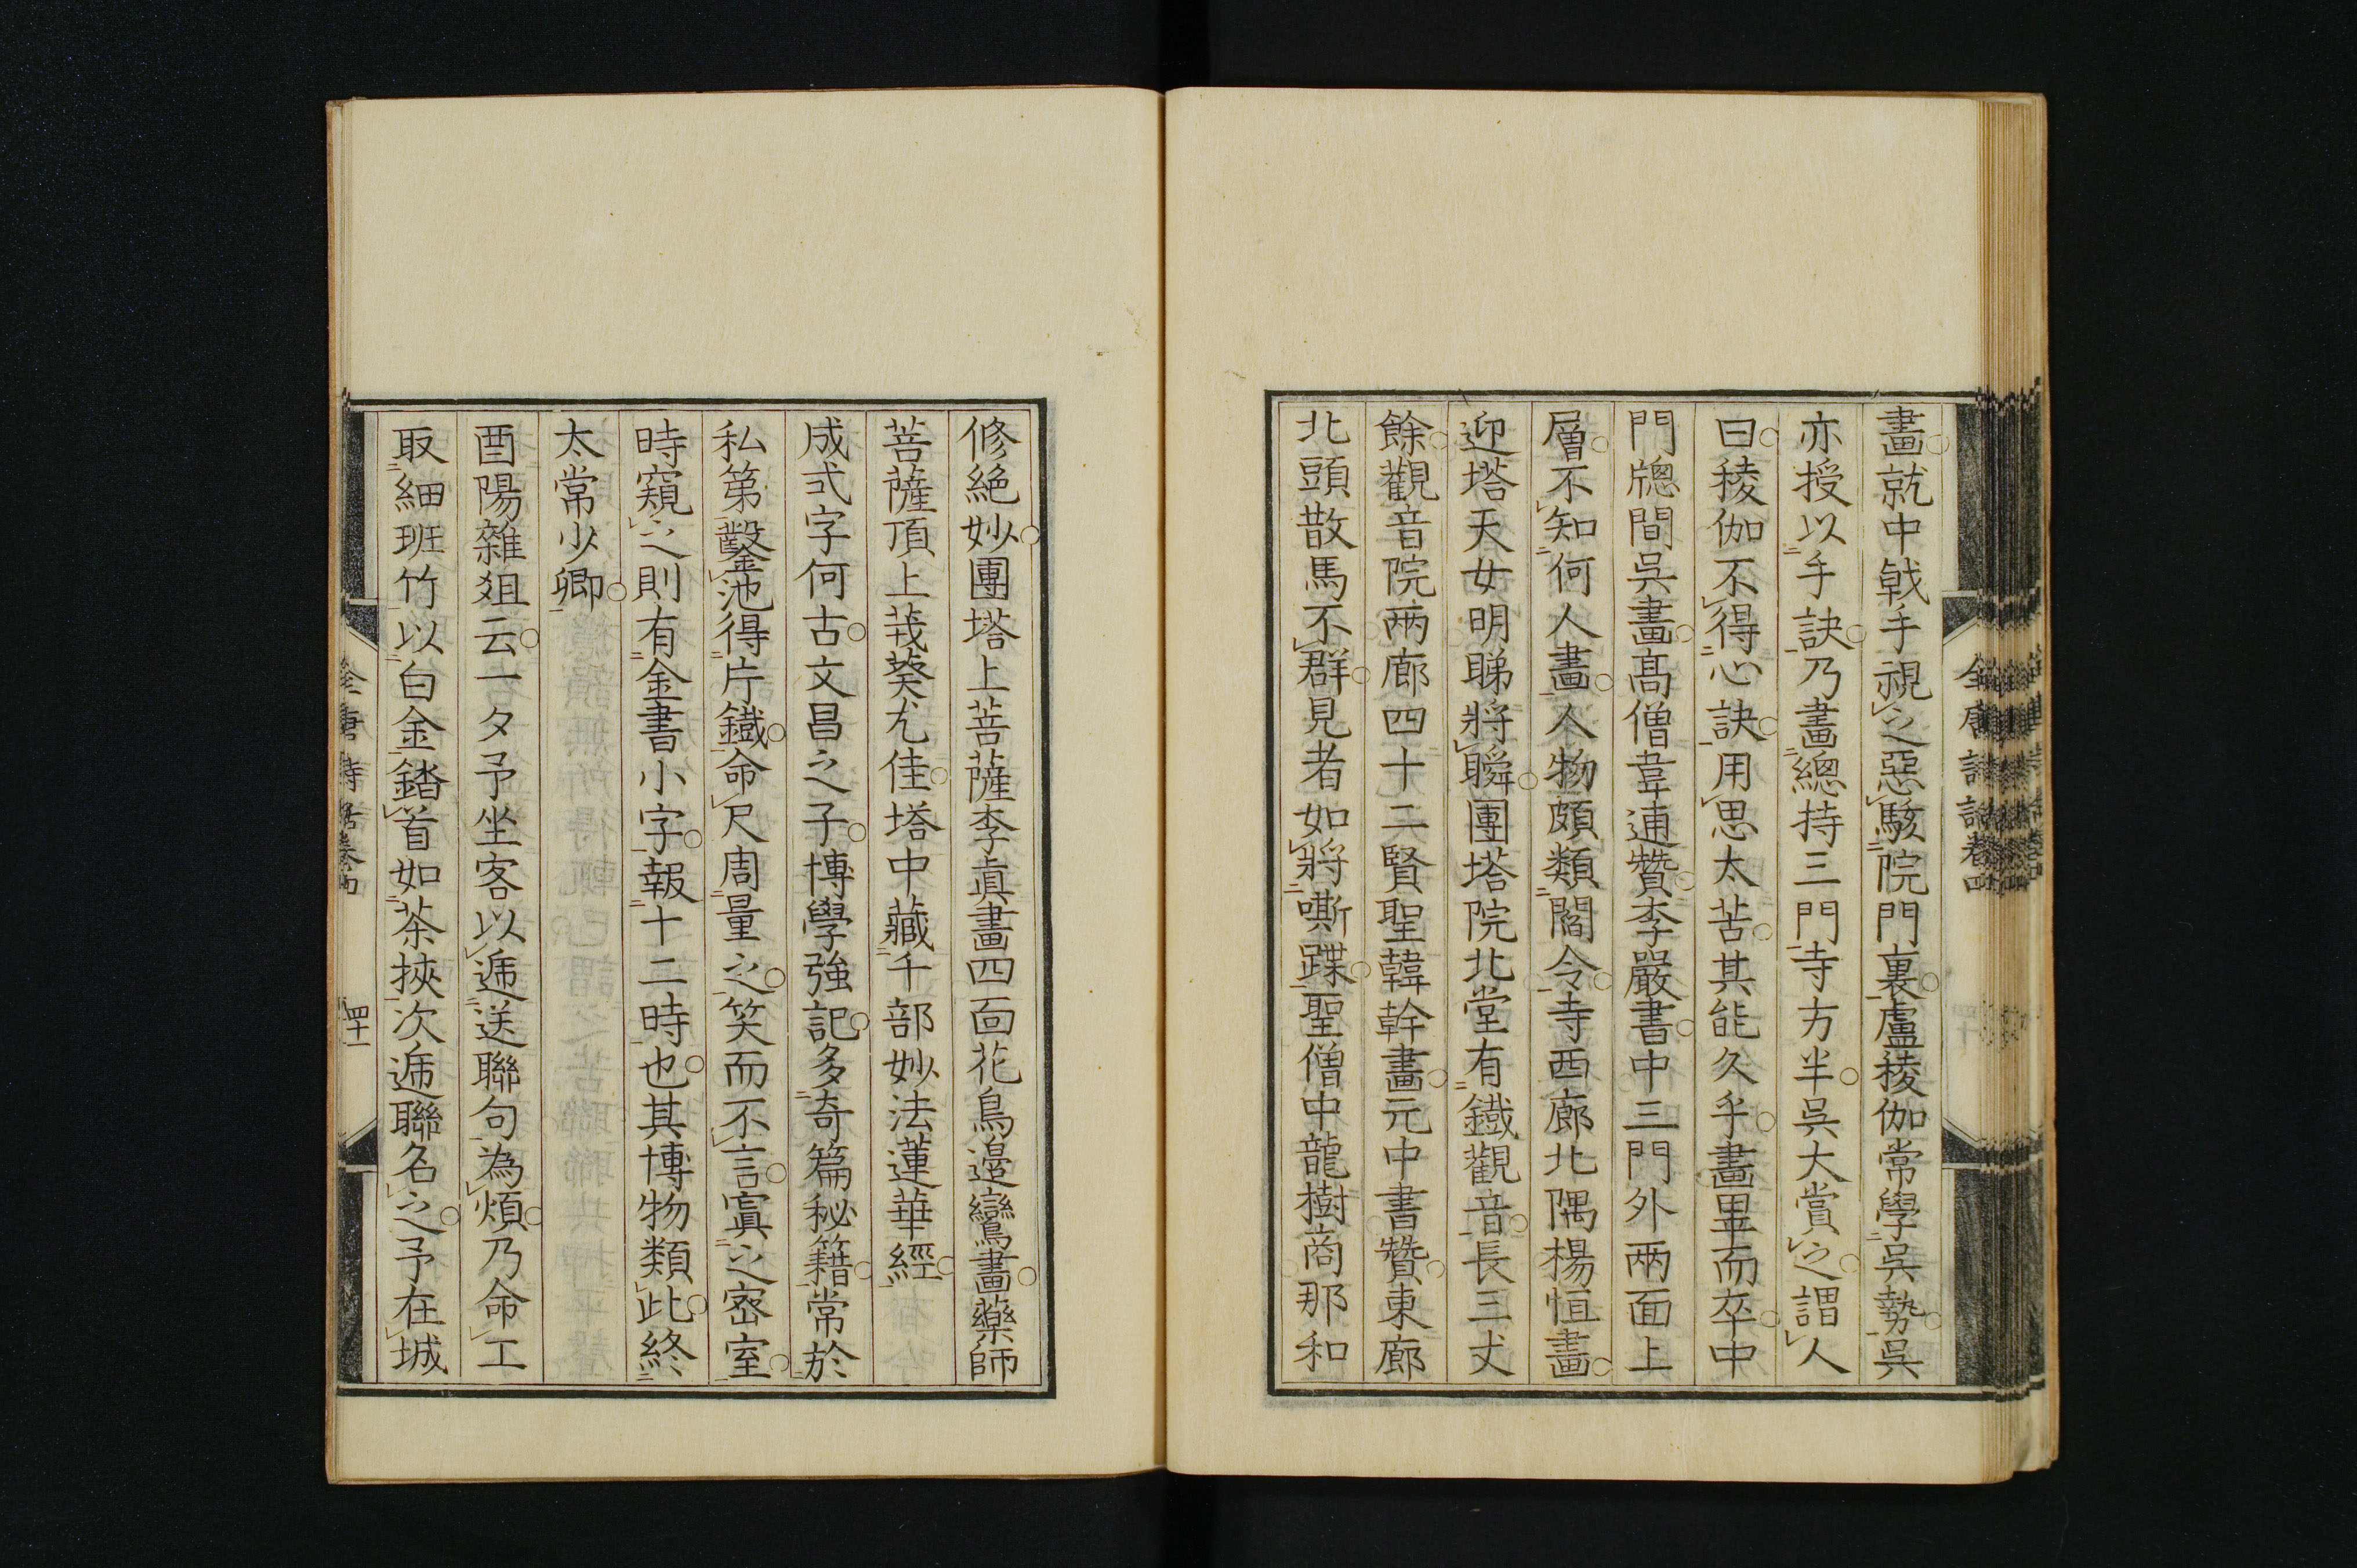 畫就中戟手視之惡駭院門裏盧稜伽常學吳勢吳
亦授以手訣乃畫總持三門寺方半吳大賞之謂人
曰稜伽不得心訣用思太苦其能久乎畫畢而卒中
門牕間吳畫高僧韋述贊李嚴書中三門外兩面上
層不知何人畫人物頗類閻令寺西廊北隅楊恒畫
迎塔天女明睇將瞬團塔院北堂有鐵觀音長三丈
餘觀音院兩廊四十二賢聖韓幹畫元中書贊東廊
北頭散馬不群見者如將嘶蹀聖僧中龍樹商那和
修絕妙團塔上菩薩李真畫四面花鳥邊鸞畫藥師
菩薩頂上茙葵尤佳塔中藏千部妙法蓮華經
成式字何古文昌之子博學強記多奇篇秘籍常於
私第鑿池得片鐵命尺周量之笑而不言寘之密室
時窺之則有金書小字報十二時也其博物類此終
太常少卿
酉陽雜俎云一夕予坐客以遞送聯句為煩乃命工
取細班竹以白金錔首如茶挾次遞聯名之予在城
全唐詩話卷四
四十一